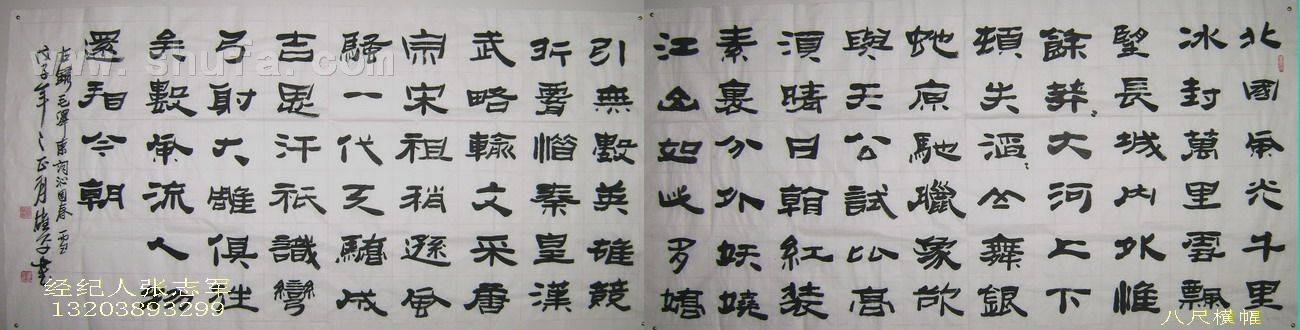 北國風光千里
冰封萬里雪飄
望長城內外惟
餘莽〻大河上下
頓失滔〻山舞銀
蛇原馳蠟象欲
與天公試比高
須晴日看紅裝
素裹分外妖嬈
江山如此多嬌
引無數英雄競
折腰惜秦皇漢
武略輸文采唐
宗宋祖稍遜風
騷一代天驕成
吉思汗祇識彎
弓射大雕俱往
矣數風流人物
還看今朝
右錄毛澤東詞沁園春雪
戊子年之正月
www.shufa.com
经纪人张志军
13203893299
八尺横幅